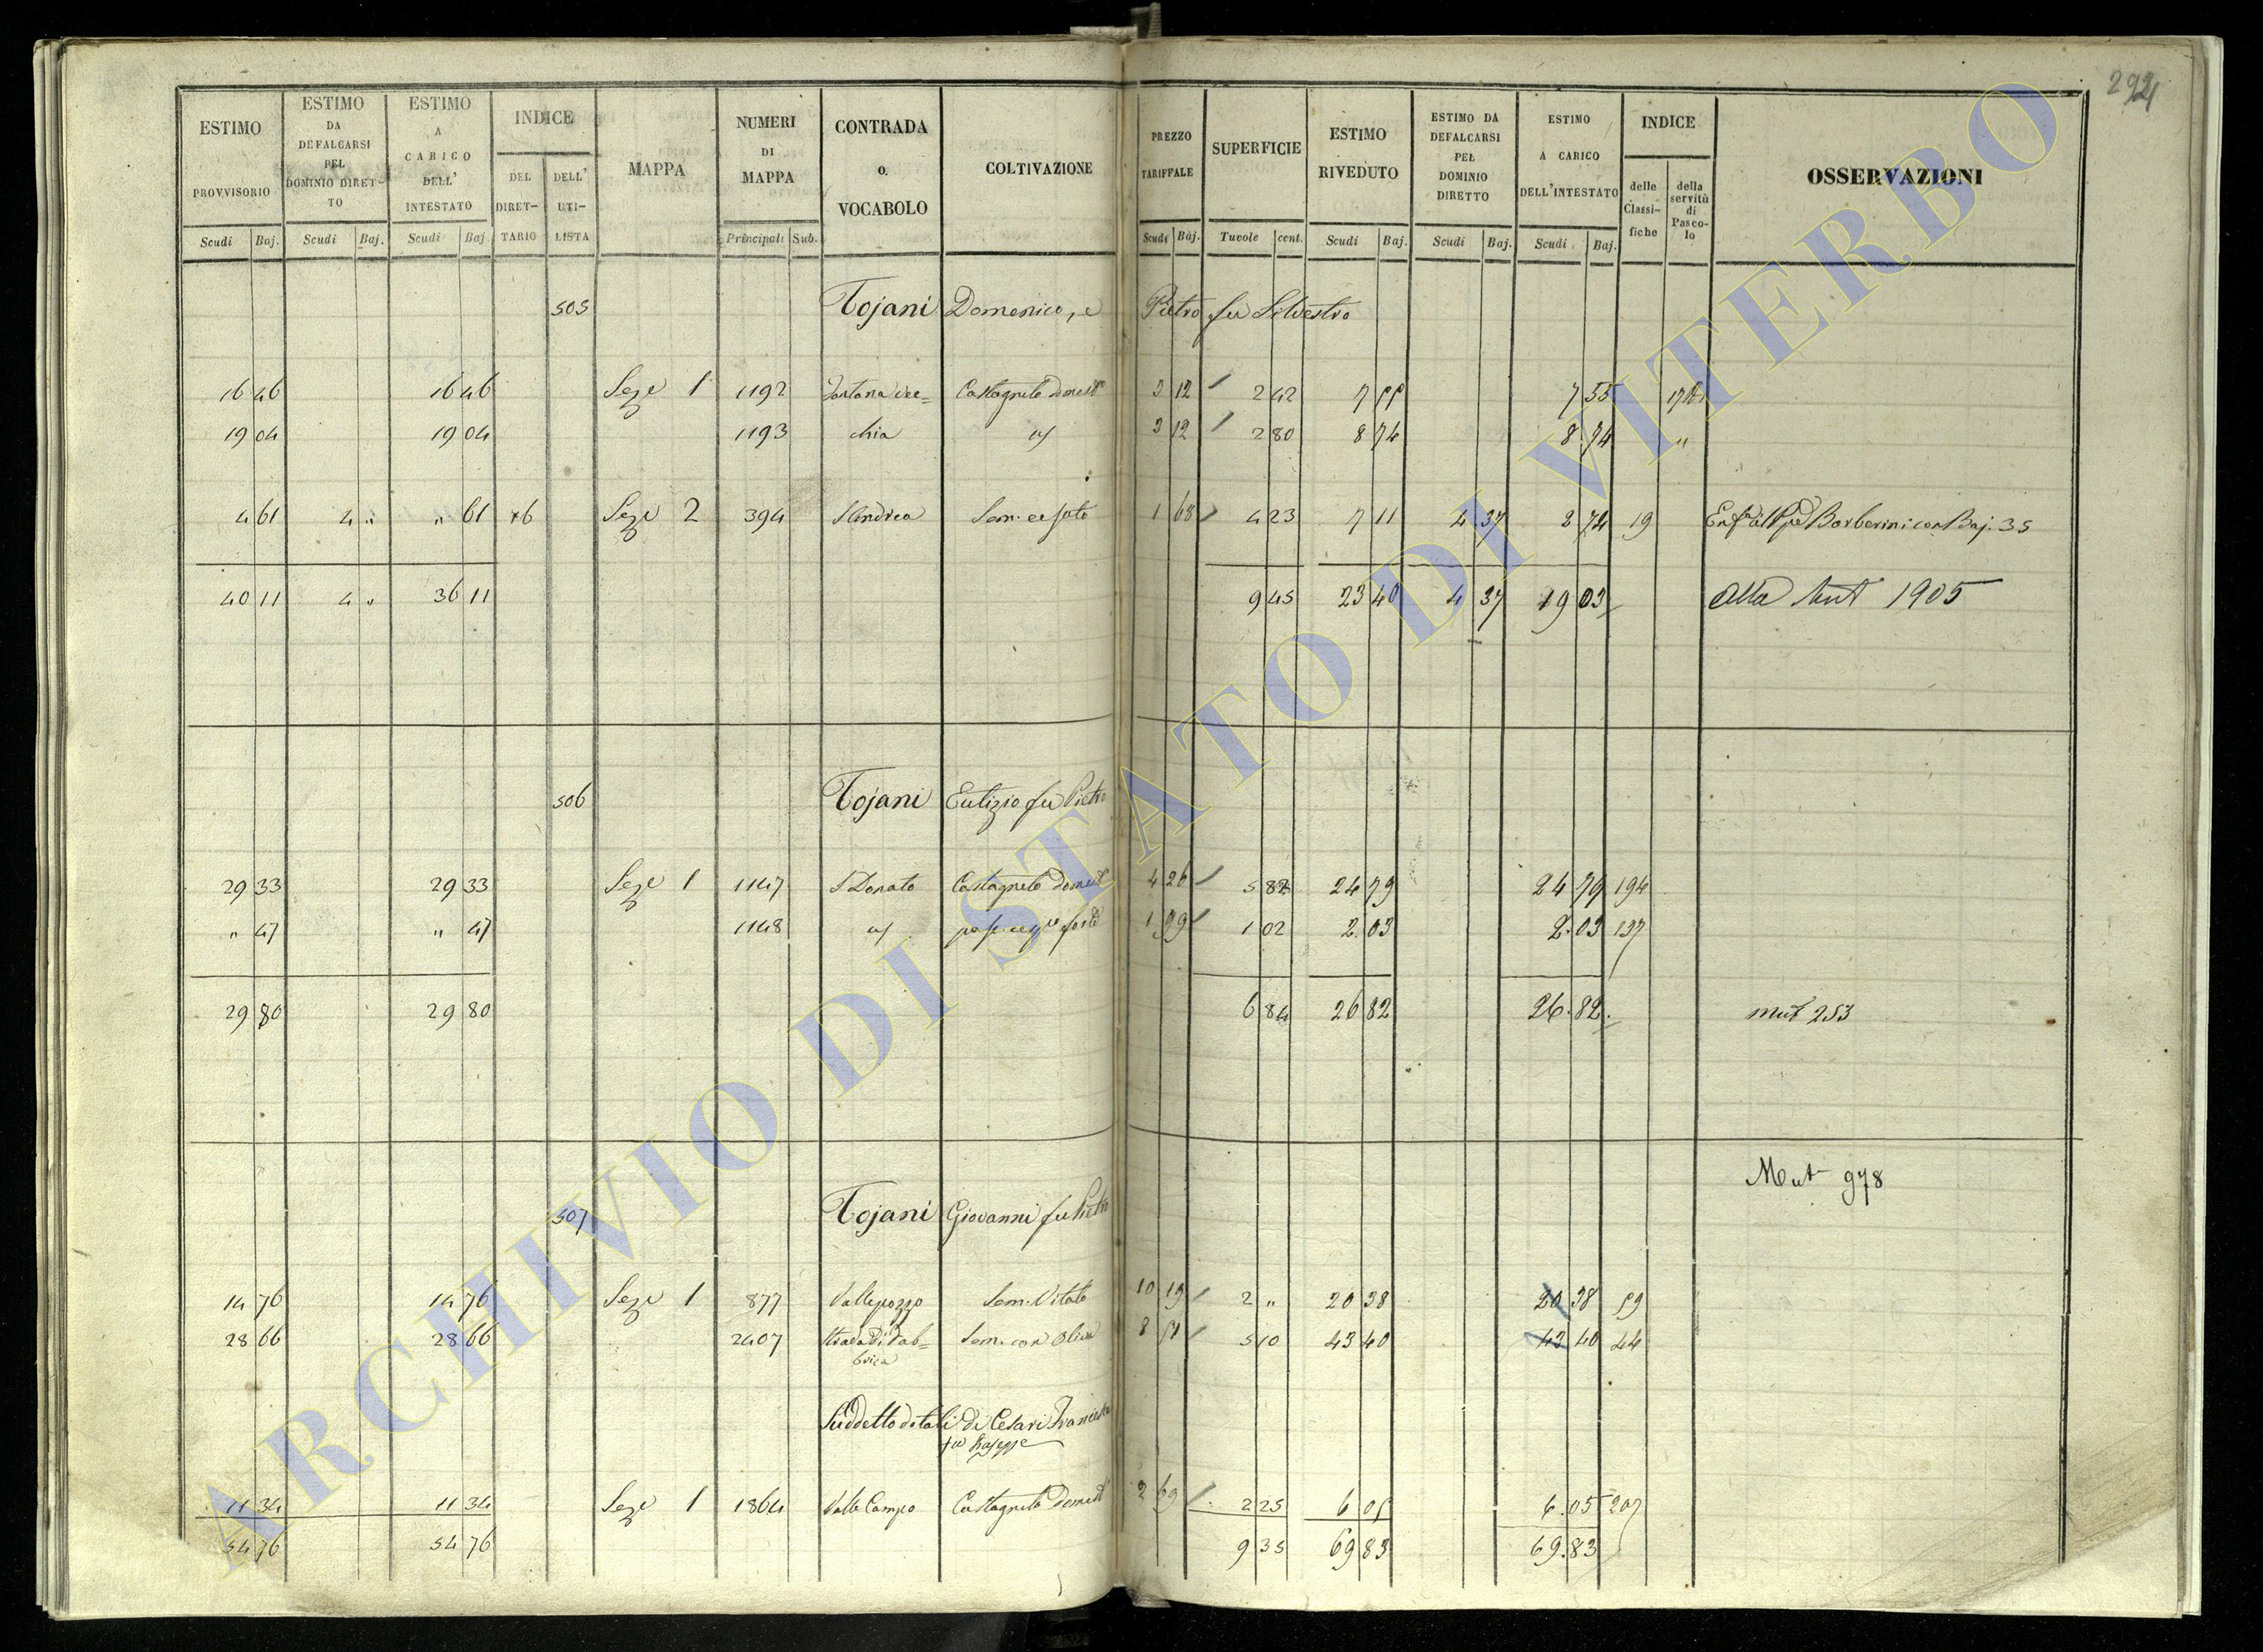 294
ESTIMO PROVVISORIO
ESTIMO DA DEFALCARSI PEL DOMINIO DIRET-TO
ESTIMO A CARICO DELL' INTESTATO
INDICE
DEL DIRET-TARIO
DELL' UTI-LISTA
MAPPA
NUMERI DI MAPPA
CONTRADA O. VOCABOLO
COLTIVAZIONE
PREZZO TARIFFALE
SUPERFICIE
ESTIMO RIVEDUTO
ESTIMO DA DEFALCARSI PEL DOMINIO DIRETTO
ESTIMO A CARICO DELL'INTESTATO
INDICE
delle Classi-fiche
della servitù di Pasco-lo
OSSERVAZIONI
Scudi Baj. Scudi Baj. Scudi Baj. Principali Sub. Scudi Baj. Tavole cent. Scudi Baj. Scudi Baj. Scudi Baj.
505 Tojani Domenico, e Pietro fu Silvestro
16 46 16 46 Seze 1 1192 Fontana vec= Castagneto domest 3 12 2 42 7 55 7 55
19 04 19 04 1193 chia 3 12 2 80 8 74 8 74 "
4 61 4 " " 61 Seze 2 394 S Andrea 1 68 4 23 7 11 4 37 2 74 19 Barberini con Baj. 35
40 11 4 " 36 11 9 45 23 40 4 37 19 03 Alla Mut 1905
506 Tojani Eutizio fu Pietro
29 33 29 33 Seze 1 1147 S Donato Castagneto domest 4 26 5 82 24 79 24 79 194
" 47 " 47 1148 1 99 1 02 2 03 2 03 137
29 80 29 80 6 84 26 82 26 82 mut 253
Mut 978
507 Tojani Giovanni fu Pietro
14 76 14 76 Seze 1 877 Vallepozzo Sem. Vitato 10 19 2 " 20 38 20 38 59
28 66 28 66 2407 Strada di Fab= Sem. con Olivi 8 51 5 10 43 40 43 40 44
brica
Suddetto dotali di Cesari Francesca
fu Giuseppe
11 34 11 34 Seze 1 1864 Valle Campo Castagneto domest 2 69 2 25 6 05 6 05 207
54 76 54 76 9 35 69 83 69 83
ARCHIVIO DI STATO DI VITERBO